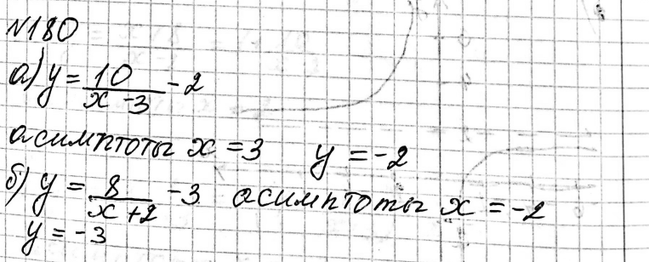 №180
а) y = 10/(x - 3) - 2
асимптоты x = 3 y = -2
б) y = 8/(x + 2) - 3 асимптоты x = -2
y = -3